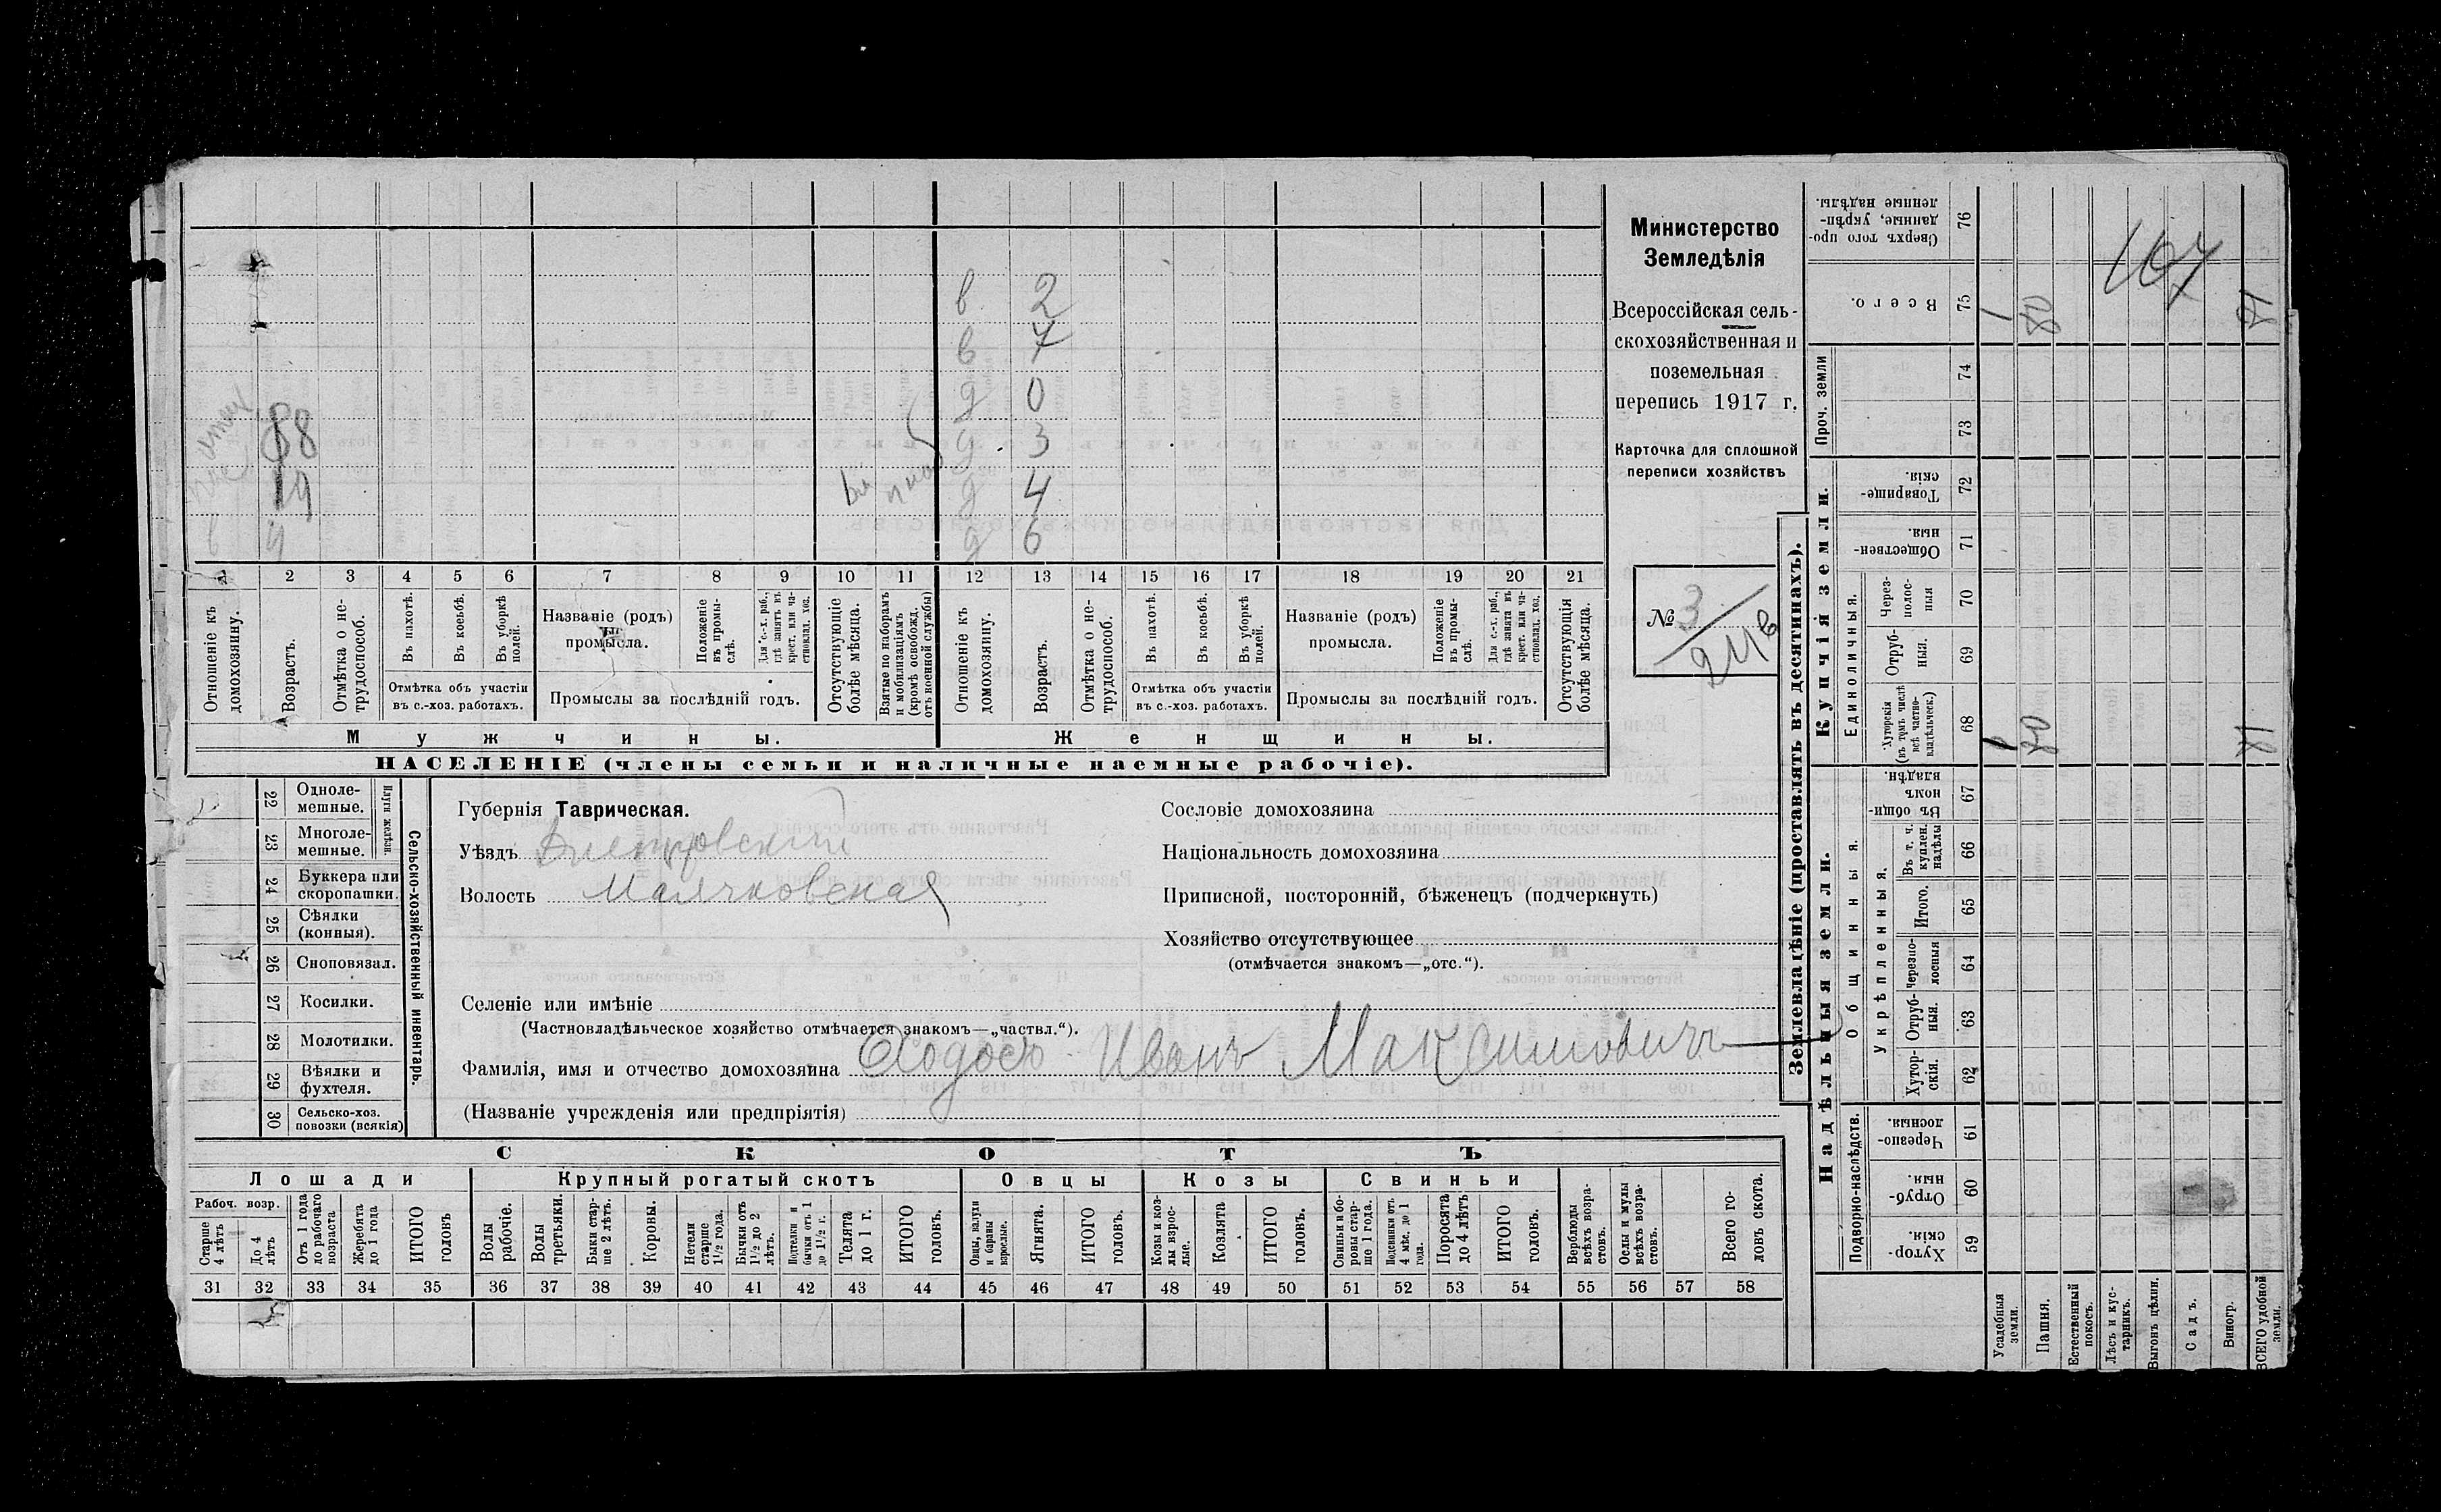 Министерство
Земледѣлія
Всероссійская сель-
скохозяйственная и
поземельная
перепись 1917 г.
Карточка для сплошной
переписи хозяйствъ
№ 3
в 2
в 7
д 0
88 д 3
д 4
в д 6
1 2 3 4 5 6 7 8 9 10 11 12 13 14 15 16 17 18 19 20 21
Отношеніе къ домохозяину.
Возрастъ.
Отмѣтка о не-трудоспособ.
Въ пахотѣ.
Въ косьбѣ.
Въ уборкѣ полей.
Отмѣтка объ участіи
въ с.-хоз. работахъ.
Названіе (родъ)
промысла.
Положеніе въ промы-слѣ.
Для с.-х. раб., гдѣ занятъ въ крест. или ча-стновлад. хоз.
Промыслы за послѣдній годъ.
Отсутствующіе болѣе мѣсяца.
Взятые по наборамъ и мобилизаціямъ (кромѣ освобожд. отъ военной службы)
Отношеніе къ домохозяину.
Возрастъ.
Отмѣтка о не-трудоспособ.
Въ пахотѣ.
Въ косьбѣ.
Въ уборкѣ полей.
Отмѣтка объ участіи
въ с.-хоз. работахъ.
Названіе (родъ)
промысла.
Положеніе въ промы-слѣ.
Для с.-х. раб., гдѣ занята въ крест. или ча-стновлад. хоз.
Промыслы за послѣдній годъ.
Отсутствующія болѣе мѣсяца.
Мужчины. Женщины.
НАСЕЛЕНІЕ (члены семьи и наличные наемные рабочіе).
22 Одноле-мешные.
23 Многоле-мешные.
Плуги желѣзн.
24 Буккера или скоропашки.
25 Сѣялки (конныя).
26 Сноповязал.
27 Косилки.
28 Молотилки.
29 Вѣялки и фухтеля.
30 Сельско-хоз. повозки (всякія)
Сельско-хозяйственный инвентарь.
Губернія Таврическая.
Уѣздъ Днепровский
Волость Маячковская
Сословіе домохозяина
Національность домохозяина
Приписной, посторонній, бѣженецъ (подчеркнуть)
Хозяйство отсутствующее
(отмѣчается знакомъ—„отс.“).
Селеніе или имѣніе
(Частновладѣльческое хозяйство отмѣчается знакомъ—„частвл.“).
Фамилія, имя и отчество домохозяина Иванъ Максимовичъ
(Названіе учрежденія или предпріятія)
СКОТЪ
Лошади Крупный рогатый скотъ Овцы Козы Свиньи
Рабоч. возр.
Старше 4 лѣтъ
До 4 лѣтъ
Отъ 1 года до рабочаго возраста
Жеребята до 1 года
ИТОГО головъ
Волы рабочіе.
Волы третьяки.
Быки стар-ше 2 лѣтъ.
Коровы.
Нетели старше 1½ года.
Бычки отъ 1½ до 2 лѣтъ.
Подтелки и бычки отъ 1 до 1½ г.
Телята до 1 г.
ИТОГО головъ.
Овцы, валухи и бараны взрослые.
Ягнята.
ИТОГО головъ.
Козы и коз-лы взрос-лые.
Козлята
ИТОГО головъ.
Свиньи и бо-ровы стар-ше 1 года.
Подсвинки отъ 4 мѣс. до 1 года.
Поросята до 4 лѣтъ
ИТОГО головъ.
Верблюды всѣхъ возра-стовъ.
Ослы и мулы всѣхъ возра-стовъ.
Всего го-ловъ скота.
31 32 33 34 35 36 37 38 39 40 41 42 43 44 45 46 47 48 49 50 51 52 53 54 55 56 57 58
Землевладѣніе (проставлять въ десятинахъ).
Надѣльныя земли. Купчія земли.
Подворно-наслѣдств.
Общинныя.
Укрѣпленныя.
Единоличныя.
Проч. земли
Хутор-скія. 59
Отруб-ныя. 60
Черезпо-лосныя 61
Хутор-скія. 62
Отруб-ныя. 63
Черезпо-лосныя 64
Итого. 65
Въ т. ч. куплен. надѣлы 66
Въ общин-номъ владѣн. 67
Хуторскія (въ томъ числѣ всѣ частно-владѣльческ.) 68
Отруб-ныя. 69
Через-полос-ныя 70
Обществен-ныя 71
Товарище-скія. 72
73
74
Всего. 75
Сверхъ того про-данные, укрѣп-ленные надѣлы. 76
Усадебныя земли. 1 1
Пашня. 80 80
Естественный покосъ.
Лѣсъ и кус-тарникъ.
Выгонъ цѣлин.
Садъ.
Виногр.
ВСЕГО удобной земли. 81 81
107